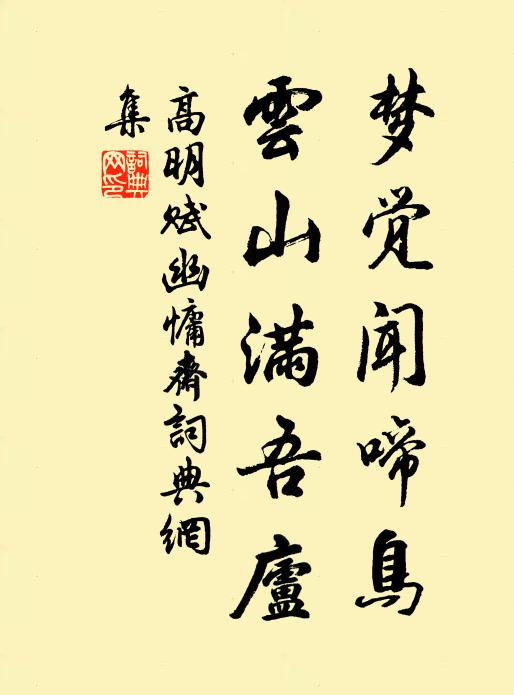 梦觉闻啼鳥
雲山滿吾廬
高明赋幽慵齋詞典網
集
詞典網印